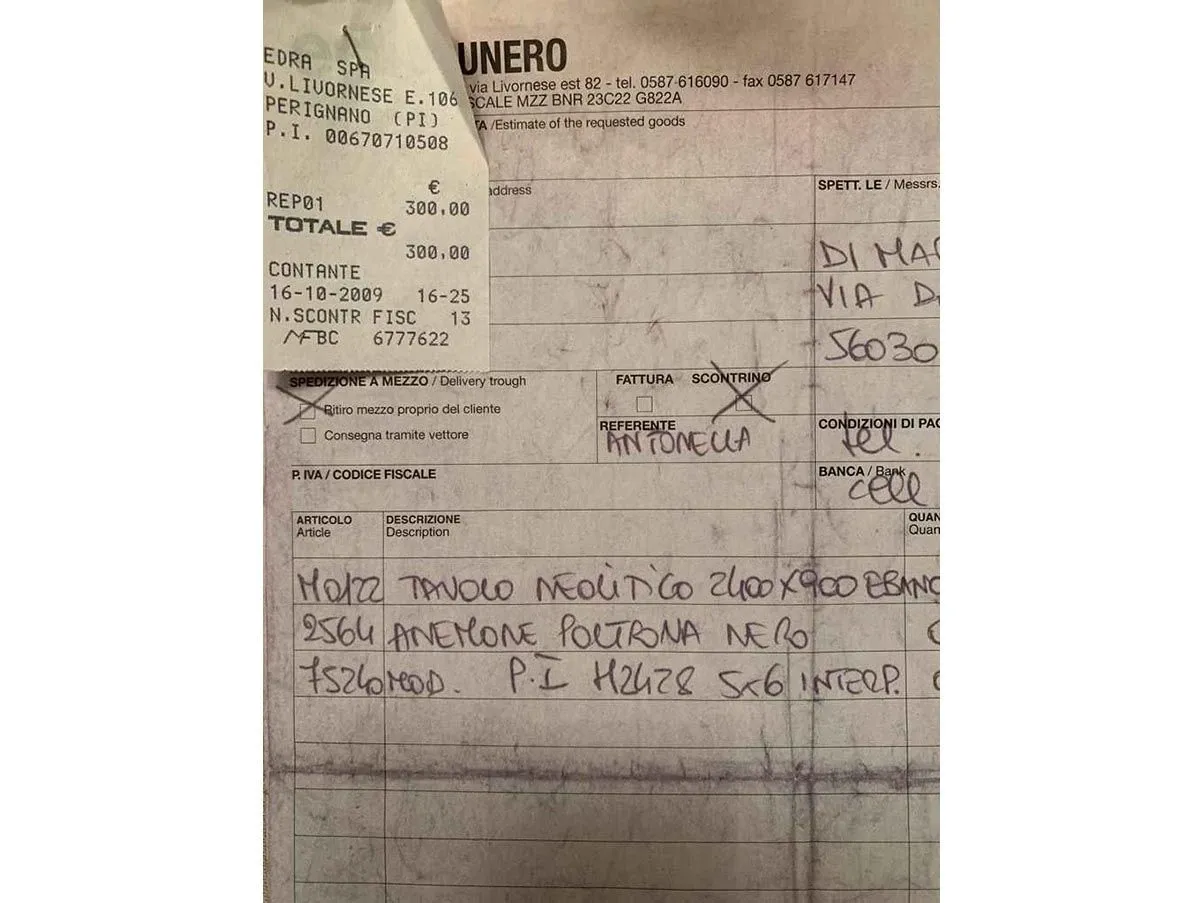 EDRA SPA
V.LIVORNESE E.106
PERIGNANO (PI)
P.I. 00670710508
€
REP01 300,00
TOTALE €
300,00
CONTANTE
16-10-2009 16-25
N.SCONTR FISC 13
MFBC 6777622
UNERO
via Livornese est 82 - tel. 0587-616090 - fax 0587 617147
SCALE MZZ BNR 23C22 G822A
TA /Estimate of the requested goods
address
SPETT. LE / Messrs.
DI MAR
VIA D
56030
SPEDIZIONE A MEZZO / Delivery trough
Ritiro mezzo proprio del cliente
Consegna tramite vettore
FATTURA SCONTRINO
REFERENTE
ANTONELLA
CONDIZIONI DI PAG
tel.
BANCA / Bank
cell
P. IVA / CODICE FISCALE
ARTICOLO DESCRIZIONE QUAN
Article Description Quan
M0122 TAVOLO NEOLITICO 2400X900 EBANO
2564 ANEMONE POLTRONA NERO
7524 MOD. P.I H2428 5x6 INTERP.